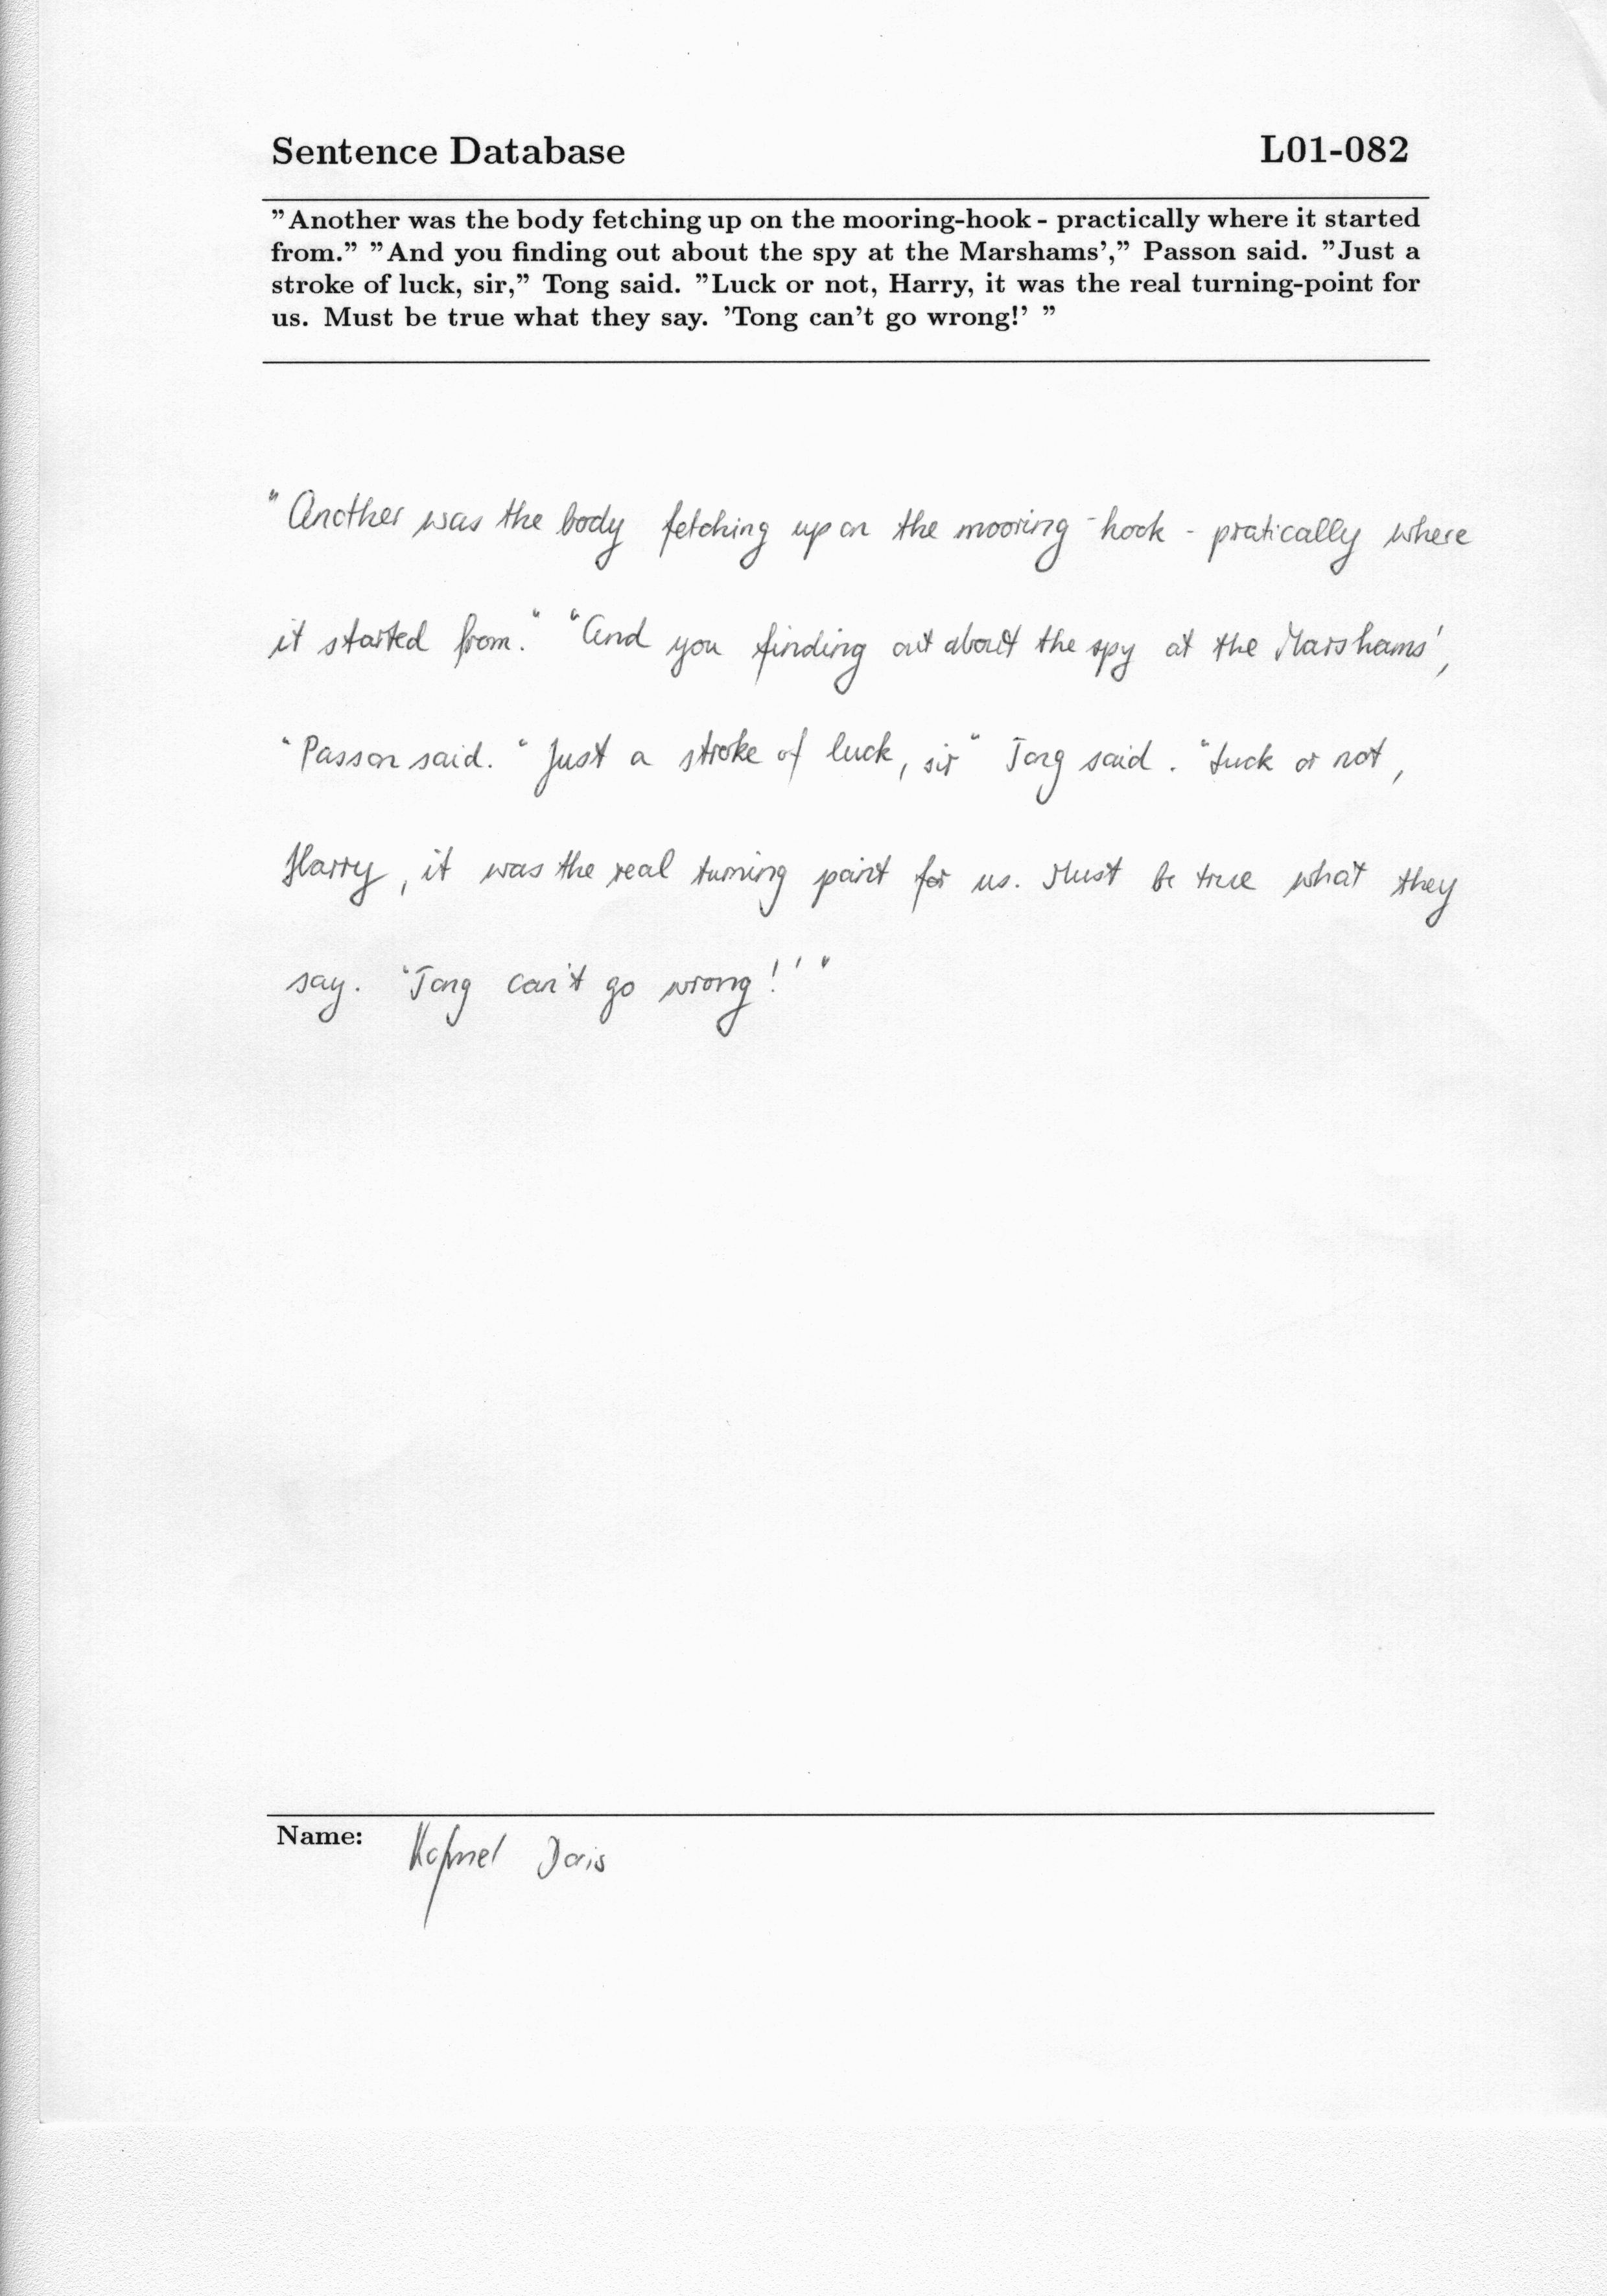 Sentence Database L01-082
"Another was the body fetching up on the mooring-hook - practically where it started
from." "And you finding out about the spy at the Marshams'," Passon said. "Just a
stroke of luck, sir," Tong said. "Luck or not, Harry, it was the real turning-point for
us. Must be true what they say. 'Tong can't go wrong!' "
"Another was the body fetching up on the mooring-hook - pratically where
it started from." "And you finding out about the spy at the Marshams',
"Passon said. "Just a stroke of luck, sir" Tong said. "Luck or not,
Harry, it was the real turning point for us. Must be true what they
say. 'Tong can't go wrong!' "
Name: Doris